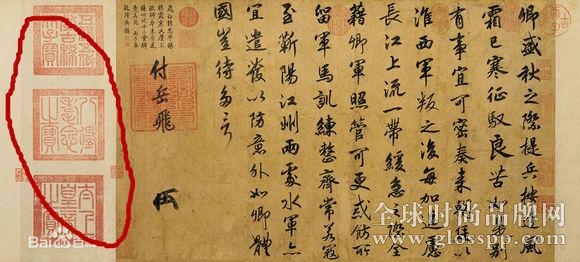 卿盛秋之際提兵按邊風
霜已寒征馭良苦如是別
有事宜可密奏來朝廷以
淮西軍叛之後每加過慮
長江上流一帶緩急之際全
藉卿軍照管可更戒飭所
留軍馬訓練整齊常若寇
至蘄陽江州兩處水軍亦
宜遣發以防意外如卿體
國豈待多言
付岳飛
八徵耄念之寶
太上皇帝之寶
Bai du 百科
全球时尚品牌网
www.glosspp.com